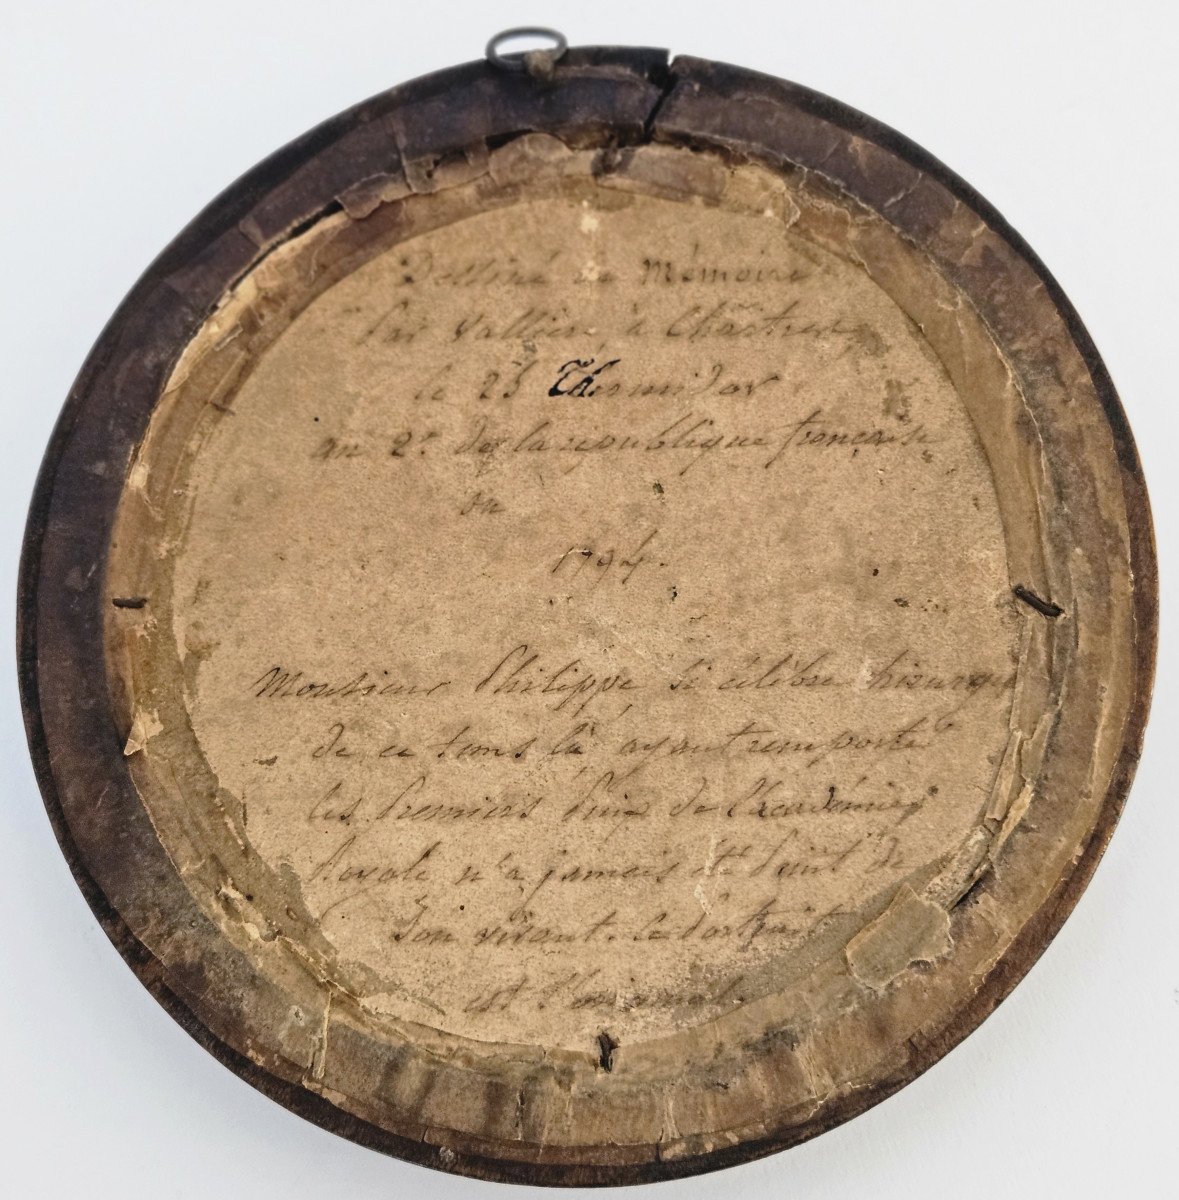 Dessiné de Mémoire
Par Vallière, à Chartres
le 25 Thermidor
an 2e. de la republique française
ou
1794.
Monsieur Philippe si célèbre
de ce tems là ayant remporté
les Premiers Prix de l'Académie
Royale n'a jamais été Peint de
Son vivant. le Portrait
est l'original.